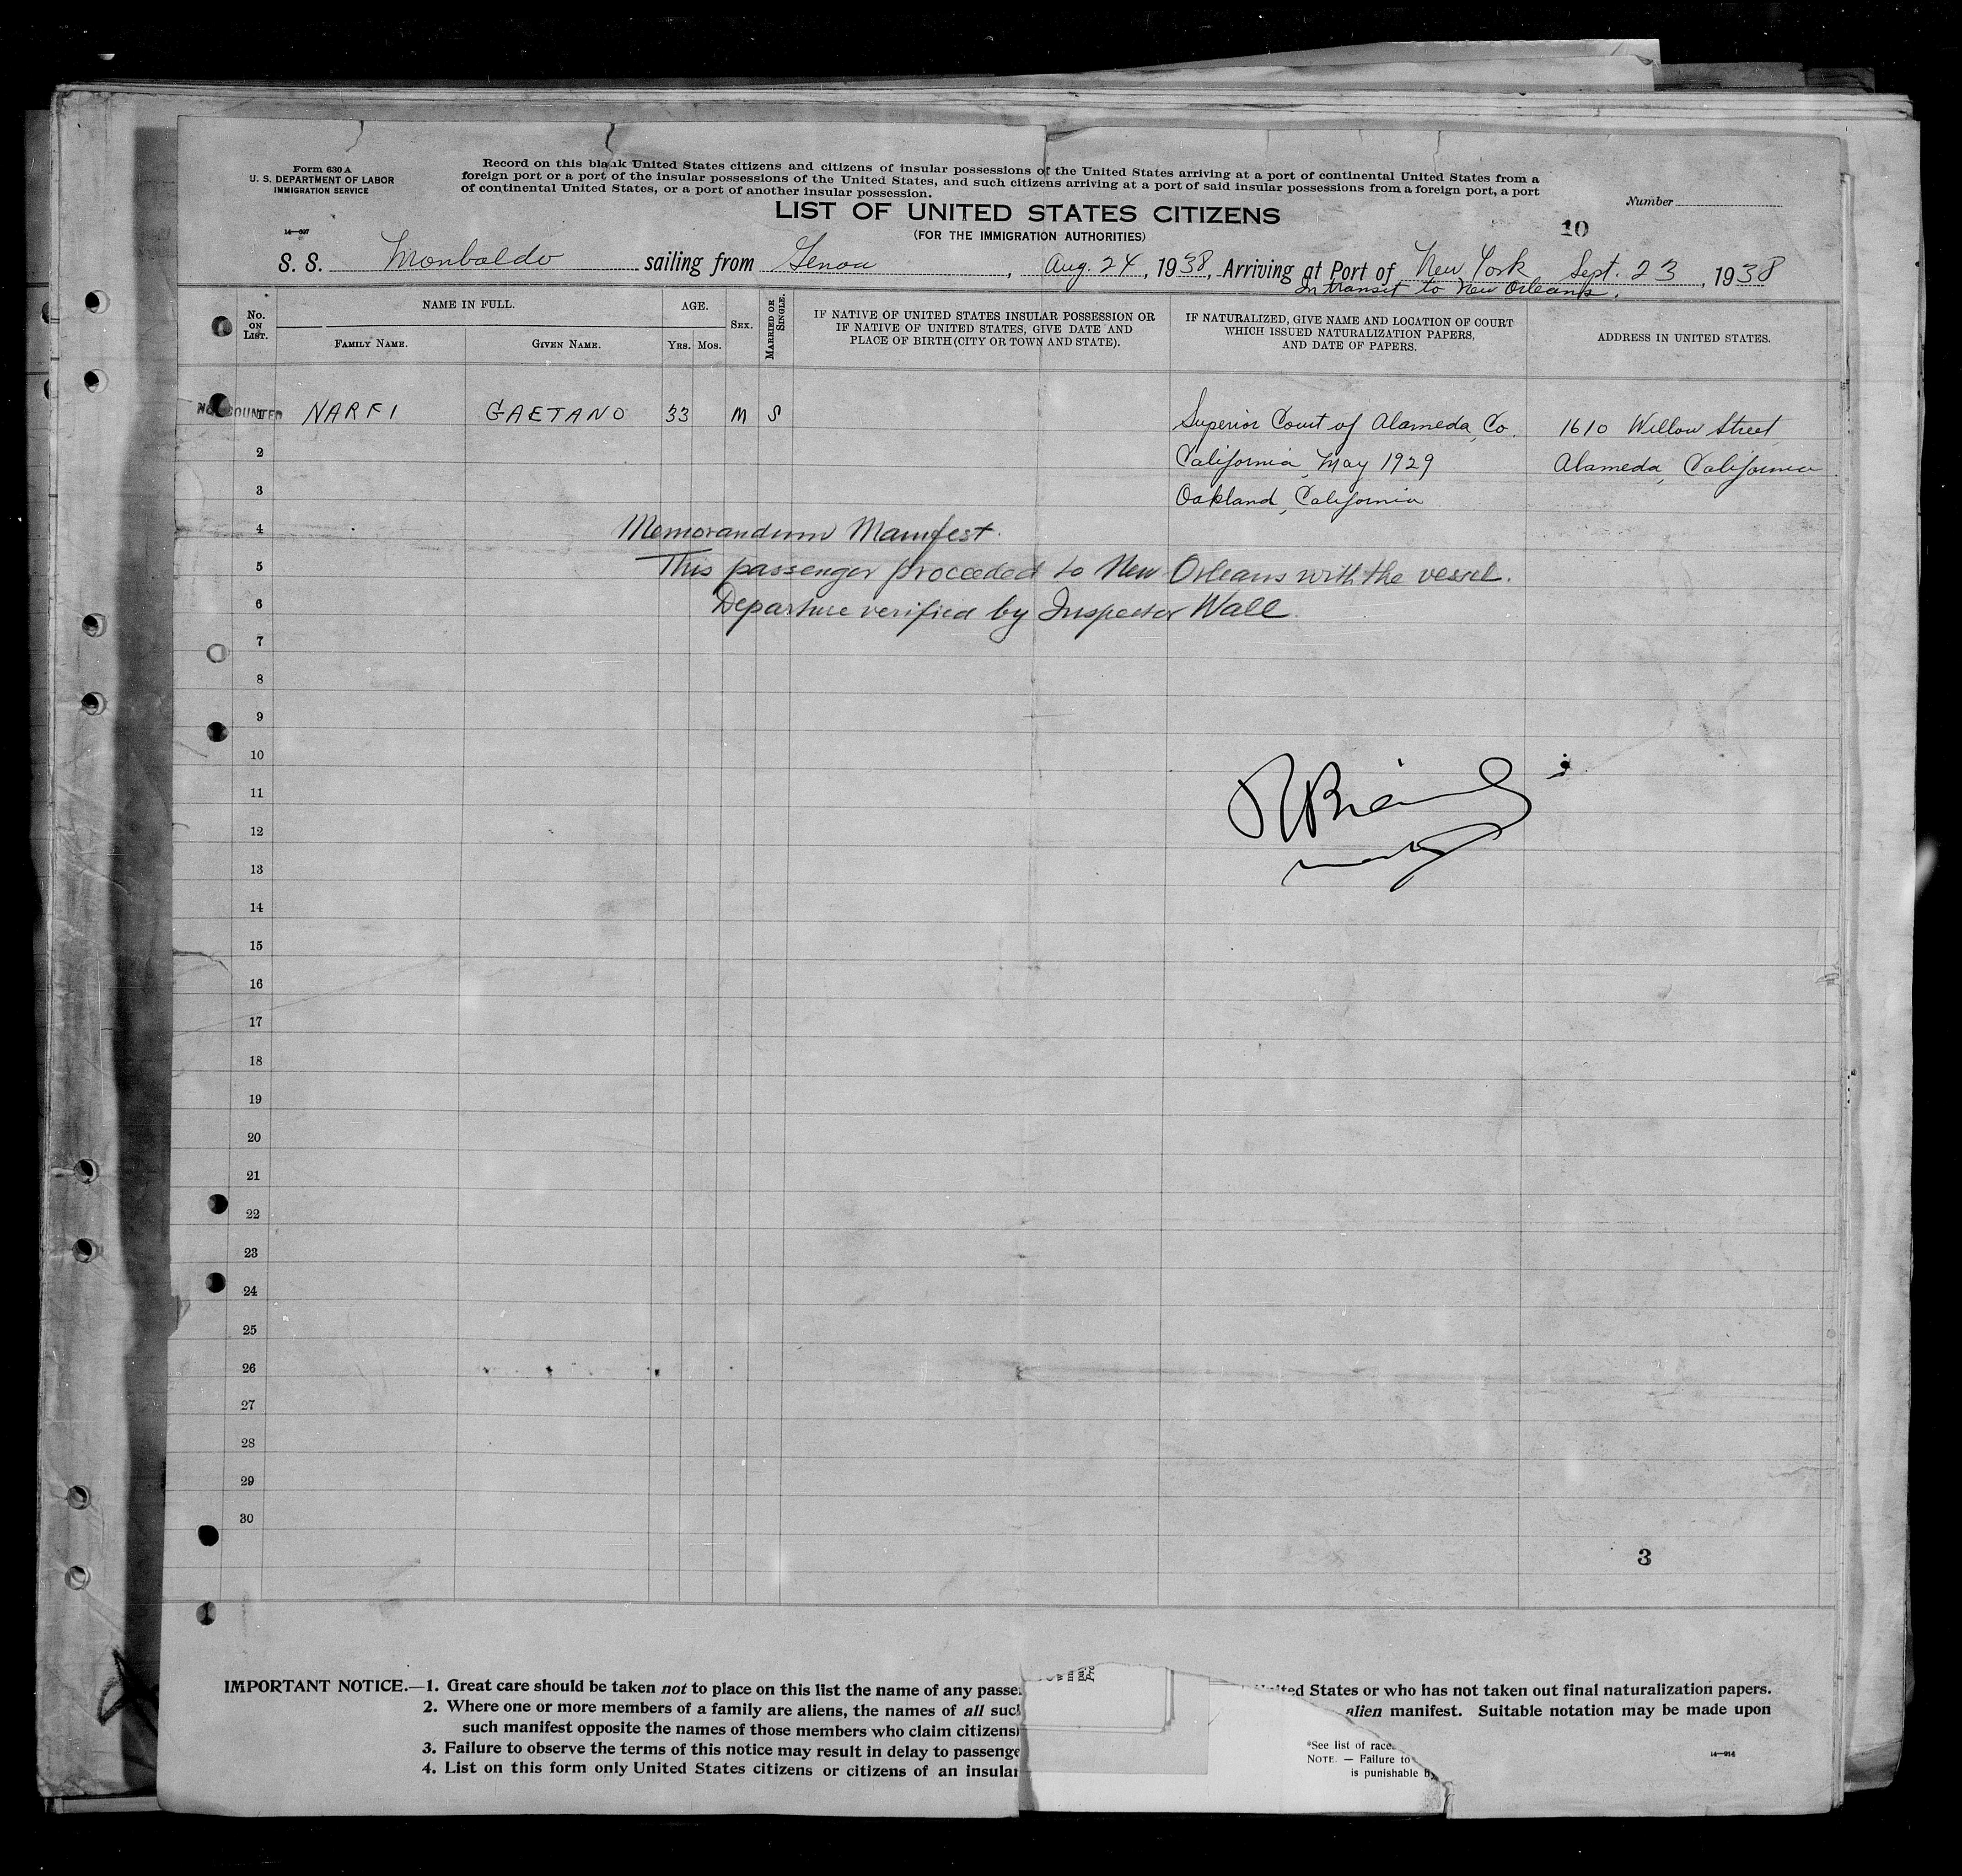 Form 630 A
U. S. DEPARTMENT OF LABOR
IMMIGRATION SERVICE
Record on this blank United States citizens and citizens of insular possessions of the United States arriving at a port of continental United States from a
foreign port or a port of the insular possessions of the United States, and such citizens arriving at a port of said insular possessions from a foreign port, a port
of continental United States, or a port of another insular possession.
LIST OF UNITED STATES CITIZENS
(FOR THE IMMIGRATION AUTHORITIES)
Number
10
S. S. Monbaldo sailing from Genoa, Aug. 24, 1938, Arriving at Port of New York Sept. 23, 1938
In transit to New Orleans.
No. ON LIST.
NAME IN FULL.
FAMILY NAME.
GIVEN NAME.
AGE.
YRS. MOS.
SEX.
MARRIED OR SINGLE.
IF NATIVE OF UNITED STATES INSULAR POSSESSION OR
IF NATIVE OF UNITED STATES, GIVE DATE AND
PLACE OF BIRTH (CITY OR TOWN AND STATE).
IF NATURALIZED, GIVE NAME AND LOCATION OF COURT
WHICH ISSUED NATURALIZATION PAPERS,
AND DATE OF PAPERS.
ADDRESS IN UNITED STATES.
1 NARFI GAETANO 33 M S Superior Court of Alameda, Co. 1610 Willow Street
2 California, May 1929 Alameda, California
3 Oakland, California
4 Memorandum Manifest.
5 This passenger proceeded to New Orleans with the vessel.
6 Departure verified by Inspector Wall.
7
8
9
10
11
12
13
14
15
16
17
18
19
20
21
22
23
24
25
26
27
28
29
30
3
IMPORTANT NOTICE.—1. Great care should be taken not to place on this list the name of any passe
United States or who has not taken out final naturalization papers.
2. Where one or more members of a family are aliens, the names of all such
alien manifest. Suitable notation may be made upon
such manifest opposite the names of those members who claim citizens
3. Failure to observe the terms of this notice may result in delay to passenge
4. List on this form only United States citizens or citizens of an insular
*See list of race
NOTE. — Failure to
is punishable by
14—914